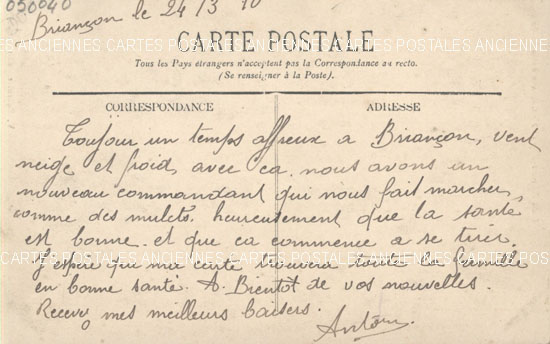 030040
Briançon le 24/3 10
CARTE POSTALE
ANCIENNES CARTES POSTALES ANCIENNES CARTES POSTALES ANCIENNES
Tous les Pays étrangers n'acceptent pas la Correspondance au recto.
(Se renseigner à la Poste).
CORRESPONDANCE
ADRESSE
Toujour un temps affreux a Briançon, vent
neige et froid, avec ca nous avons un
nouveau commandant qui nous fait marcher
comme des mulets. heureusement que la santé
est bonne. et que ca commence a se tirer.
J'espère que ma carte trouvera toute la famille
en bonne santé. A Bientot de vos nouvelles.
Recevez mes meilleurs baisers.